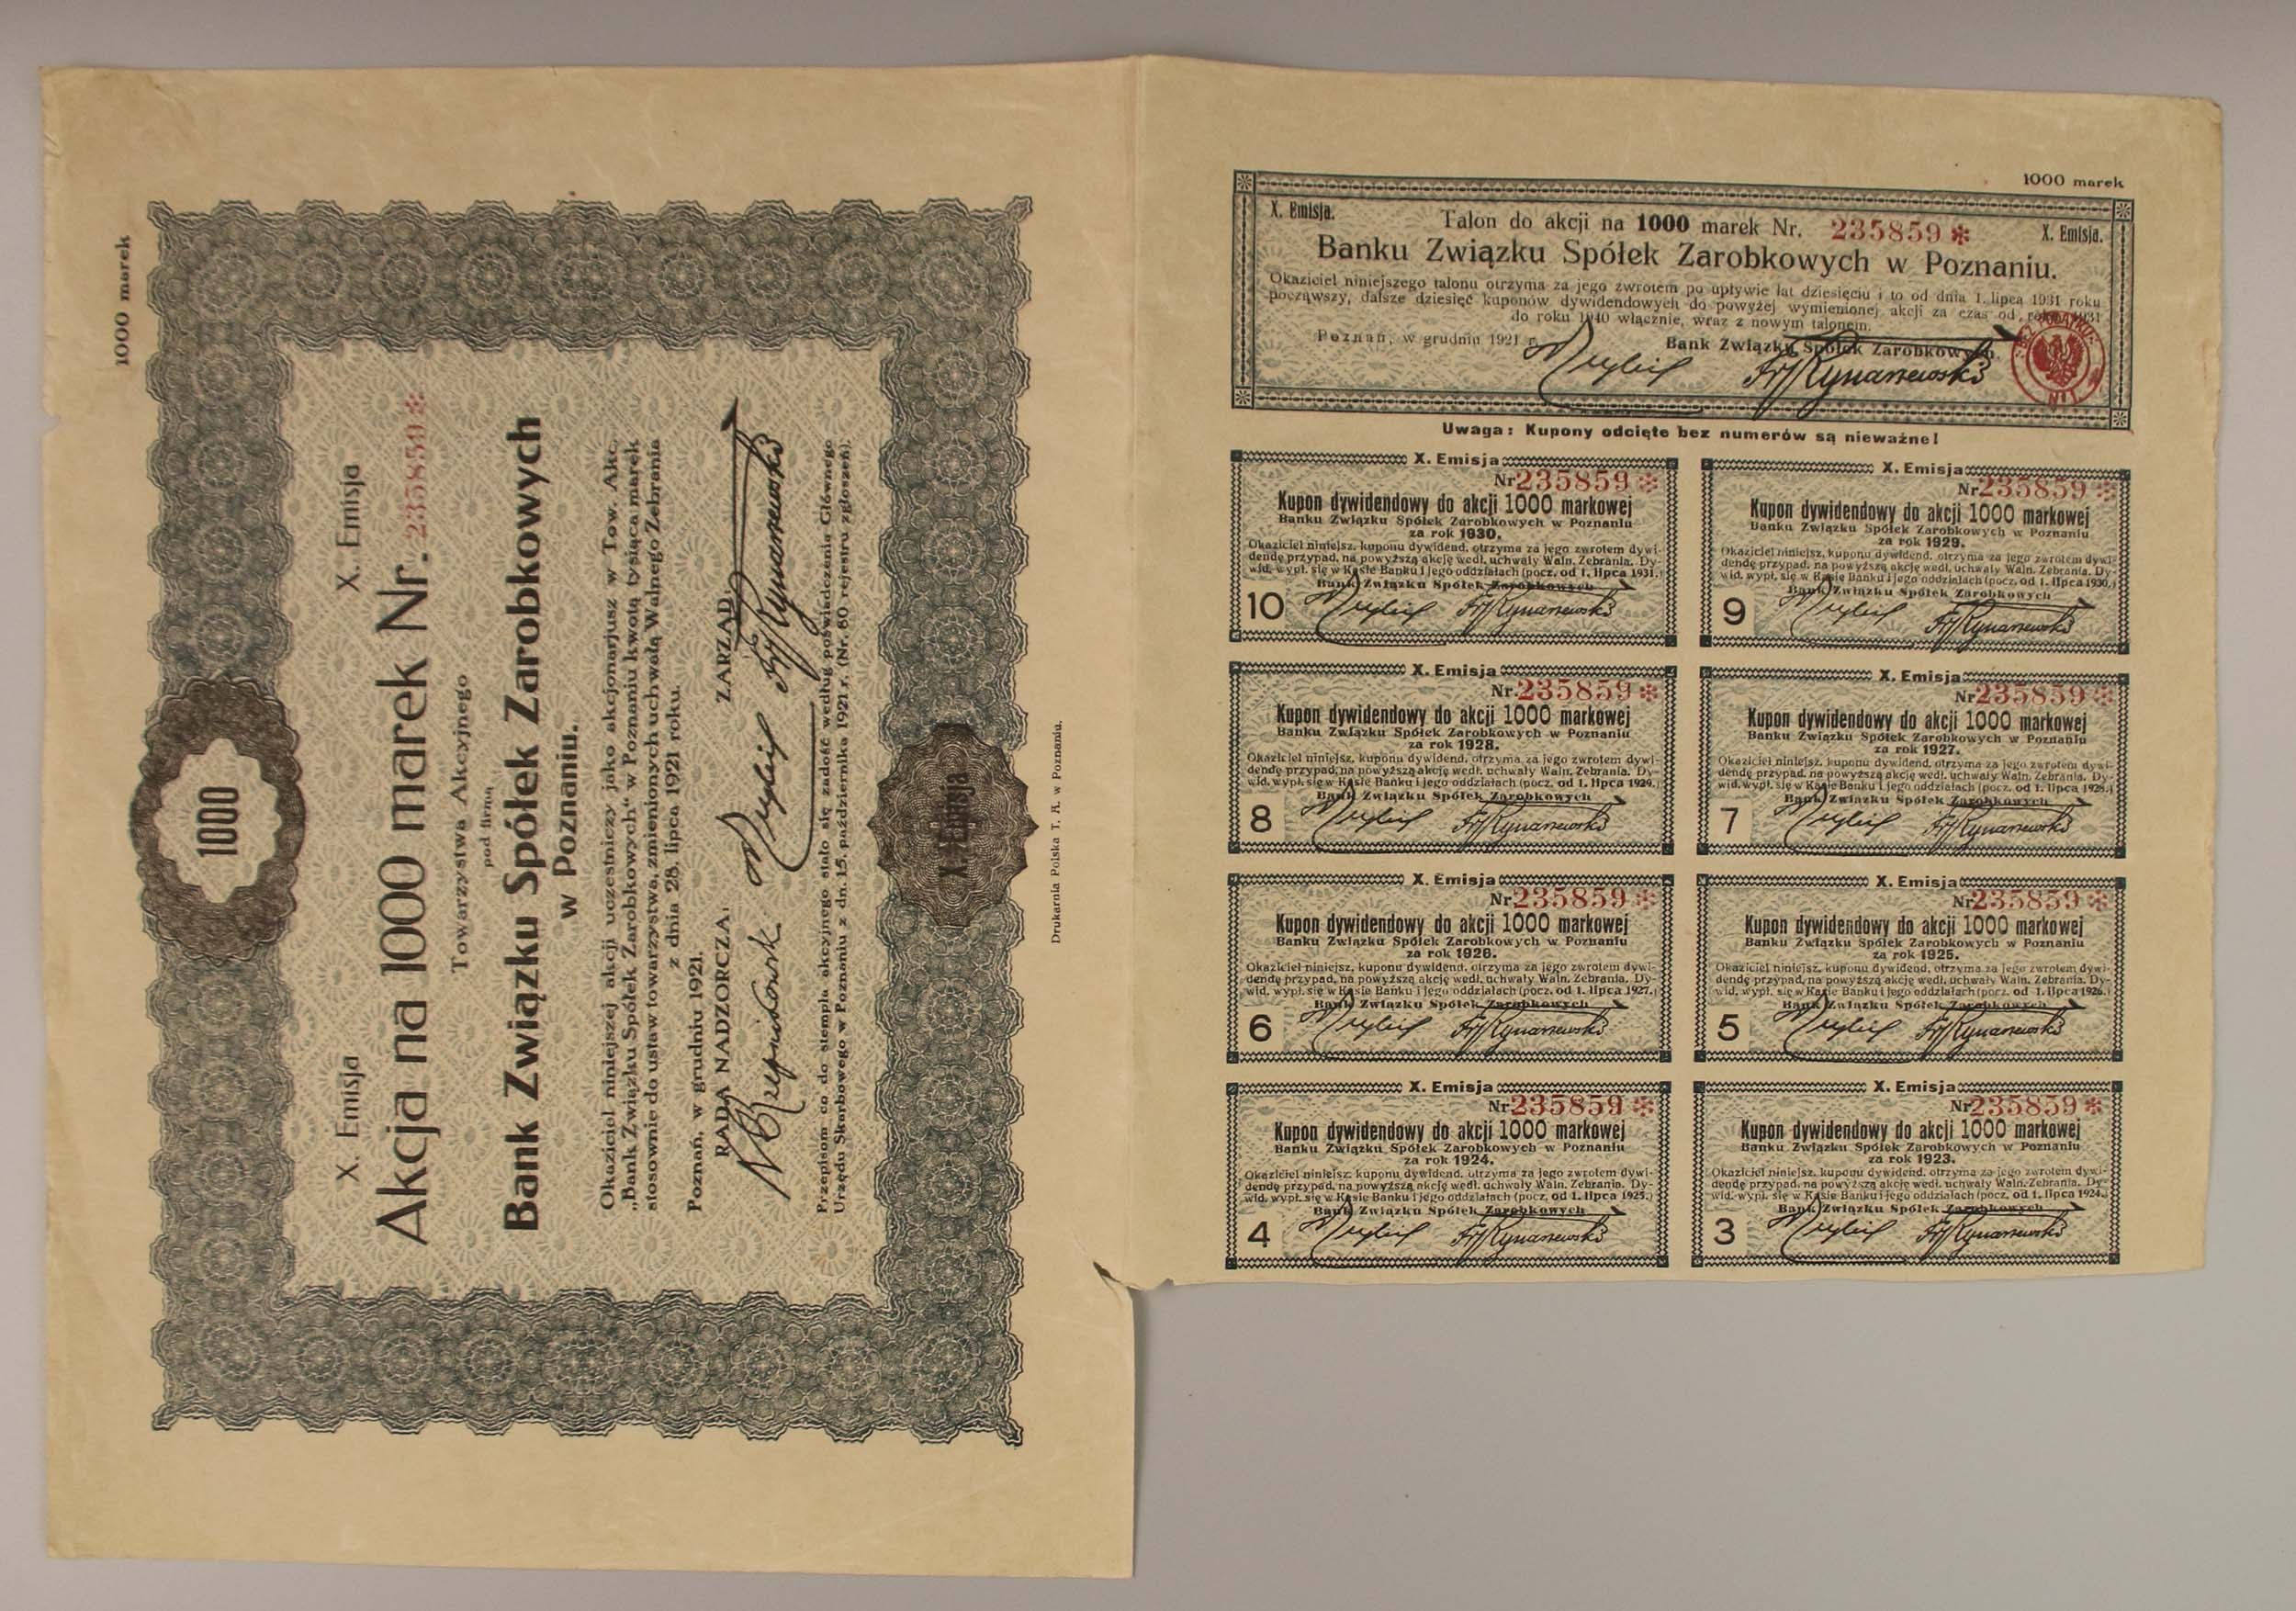 1000 marek
1000
X. Emisja X. Emisja
Akcja na 1000 marek Nr. 235859 *
Towarzystwa Akcyjnego
pod firmą
Bank Związku Spółek Zarobkowych
w Poznaniu.
Okaziciel niniejszej akcji uczestniczy jako akcjonarjusz w Tow. Akc.
„Bank Związku Spółek Zarobkowych“ w Poznaniu kwotą tysiąca marek
stosownie do ustaw towarzystwa, zmienionych uchwałą Walnego Zebrania
z dnia 28. lipca 1921 roku.
Poznań, w grudniu 1921.
RADA NADZORCZA: ZARZĄD:
Przepisom co do stempla akcyjnego stało się zadość według poświadczenia Głównego
Urzędu Skarbowego w Poznaniu z dn. 15. października 1921 r. (Nr. 60 rejestru zgłoszeń).
X. Emisja
Drukarnia Polska T. A. w Poznaniu.
1000 marek
X. Emisja. Talon do akcji na 1000 marek Nr. 235859 * X. Emisja.
Banku Związku Spółek Zarobkowych w Poznaniu.
Okaziciel niniejszego talonu otrzyma za jego zwrotem po upływie lat dziesięciu i to od dnia 1. lipca 1931 roku
począwszy, dalsze dziesięć kuponów dywidendowych do powyżej wymienionej akcji za czas od roku 1931
do roku 1940 włącznie, wraz z nowym talonem.
Poznań, w grudniu 1921 r. Bank Związku Spółek Zarobkowych.
BEZ PODATKU
Nº 1
Uwaga: Kupony odcięte bez numerów są nieważne!
X. Emisja
Nr 235859 *
Kupon dywidendowy do akcji 1000 markowej
Banku Związku Spółek Zarobkowych w Poznaniu
za rok 1930.
Okaziciel niniejsz. kuponu dywidend. otrzyma za jego zwrotem dywi-
dendę przypad. na powyższą akcję wedł. uchwały Waln. Zebrania. Dy-
wid. wypł. się w Kasie Banku i jego oddziałach (pocz. od 1. lipca 1931.)
Bank Związku Spółek Zarobkowych
10
X. Emisja
Nr 235859 *
Kupon dywidendowy do akcji 1000 markowej
Banku Związku Spółek Zarobkowych w Poznaniu
za rok 1929.
Okaziciel niniejsz. kuponu dywidend. otrzyma za jego zwrotem dywi-
dendę przypad. na powyższą akcję wedł. uchwały Waln. Zebrania. Dy-
wid. wypł. się w Kasie Banku i jego oddziałach (pocz. od 1. lipca 1930.)
Bank Związku Spółek Zarobkowych
9
X. Emisja
Nr. 235859 *
Kupon dywidendowy do akcji 1000 markowej
Banku Związku Spółek Zarobkowych w Poznaniu
za rok 1928.
Okaziciel niniejsz. kuponu dywidend. otrzyma za jego zwrotem dywi-
dendę przypad. na powyższą akcję wedł. uchwały Waln. Zebrania. Dy-
wid. wypł. się w Kasie Banku i jego oddziałach (pocz. od 1. lipca 1929.)
Bank Związku Spółek Zarobkowych
8
X. Emisja
Nr 235859 *
Kupon dywidendowy do akcji 1000 markowej
Banku Związku Spółek Zarobkowych w Poznaniu
za rok 1927.
Okaziciel niniejsz. kuponu dywidend. otrzyma za jego zwrotem dywi-
dendę przypad. na powyższą akcję wedł. uchwały Waln. Zebrania. Dy-
wid. wypł. się w Kasie Banku i jego oddziałach (pocz. od 1. lipca 1928.)
Bank Związku Spółek Zarobkowych
7
X. Emisja
Nr 235859 *
Kupon dywidendowy do akcji 1000 markowej
Banku Związku Spółek Zarobkowych w Poznaniu
za rok 1926.
Okaziciel niniejsz. kuponu dywidend. otrzyma za jego zwrotem dywi-
dendę przypad. na powyższą akcję wedł. uchwały Waln. Zebrania. Dy-
wid. wypł. się w Kasie Banku i jego oddziałach (pocz. od 1. lipca 1927.)
Bank Związku Spółek Zarobkowych
6
X. Emisja
Nr 235859 *
Kupon dywidendowy do akcji 1000 markowej
Banku Związku Spółek Zarobkowych w Poznaniu
za rok 1925.
Okaziciel niniejsz. kuponu dywidend. otrzyma za jego zwrotem dywi-
dendę przypad. na powyższą akcję wedł. uchwały Waln. Zebrania. Dy-
wid. wypł. się w Kasie Banku i jego oddziałach (pocz. od 1. lipca 1926.)
Bank Związku Spółek Zarobkowych
5
X. Emisja
Nr 235859 *
Kupon dywidendowy do akcji 1000 markowej
Banku Związku Spółek Zarobkowych w Poznaniu
za rok 1924.
Okaziciel niniejsz. kuponu dywidend. otrzyma za jego zwrotem dywi-
dendę przypad. na powyższą akcję wedł. uchwały Waln. Zebrania. Dy-
wid. wypł. się w Kasie Banku i jego oddziałach (pocz. od 1. lipca 1925.)
Bank Związku Spółek Zarobkowych
4
X. Emisja
Nr 235859 *
Kupon dywidendowy do akcji 1000 markowej
Banku Związku Spółek Zarobkowych w Poznaniu
za rok 1923.
Okaziciel niniejsz. kuponu dywidend. otrzyma za jego zwrotem dywi-
dendę przypad. na powyższą akcję wedł. uchwały Waln. Zebrania. Dy-
wid. wypł. się w Kasie Banku i jego oddziałach (pocz. od 1. lipca 1924.)
Bank Związku Spółek Zarobkowych
3